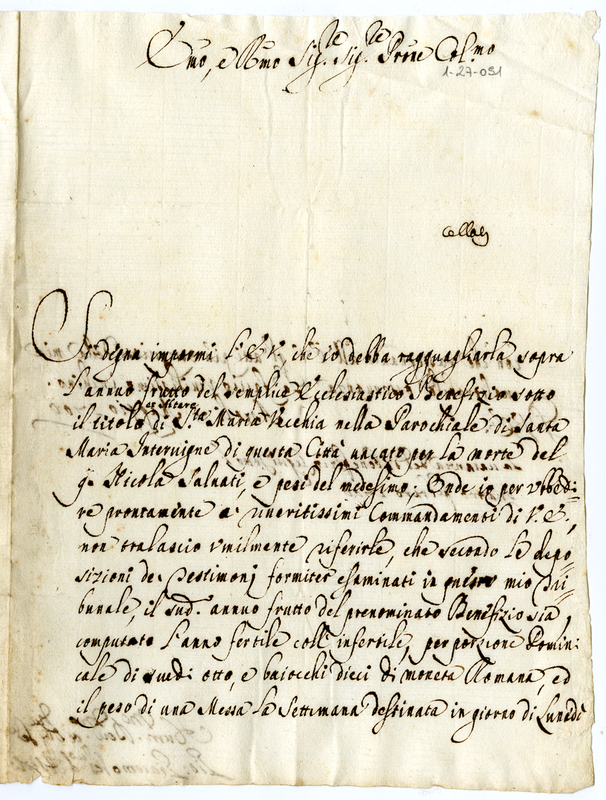 Emo, e Rmo Sig.re Sig.re Prne Col.mo
1-27-051
Si degna impormi l'E.V. che io debba ragguagliarla sopra
l'annuo frutto del semplice Ecclesiastico Benefizio sotto
il titolo di S.ta Maria Vecchia nella Parochiale di Santa
Maria Intervigne di questa Città vacato per la morte del
q. Nicola Salvati, e pesi del medesimo; Onde io per vbbedi=
re prontamente a' riveritissimi Commandamenti di V.E.,
non tralascio vmilmente riferirle, che secondo le depo
sizioni de Testimonj formiter esaminati in questo mio Tri=
bunale, il sud.o annuo frutto del prenominato Benefizio sia,
computato l'anno fertile coll'infertile, per porzione Domini=
cale di scudi otto, e baiocchi dieci di moneta Romana, ed
il peso di una Messa la Settimana destinata in giorno di Lunedì